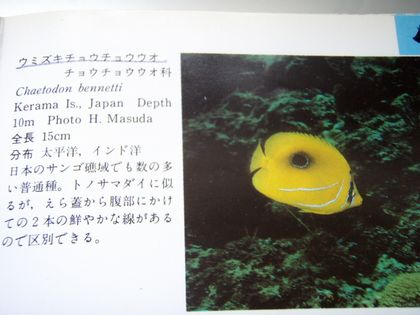 ウミズキチョウチョウウオ
チョウチョウウオ科
Chaetodon bennetti
Kerama Is., Japan Depth
10m Photo H. Masuda
全長 15cm
分布 太平洋，インド洋
日本のサンゴ礁域でも数の多
い普通種。トノサマダイに似
るが，えら蓋から腹部にかけ
ての2本の鮮やかな線がある
ので区別できる。